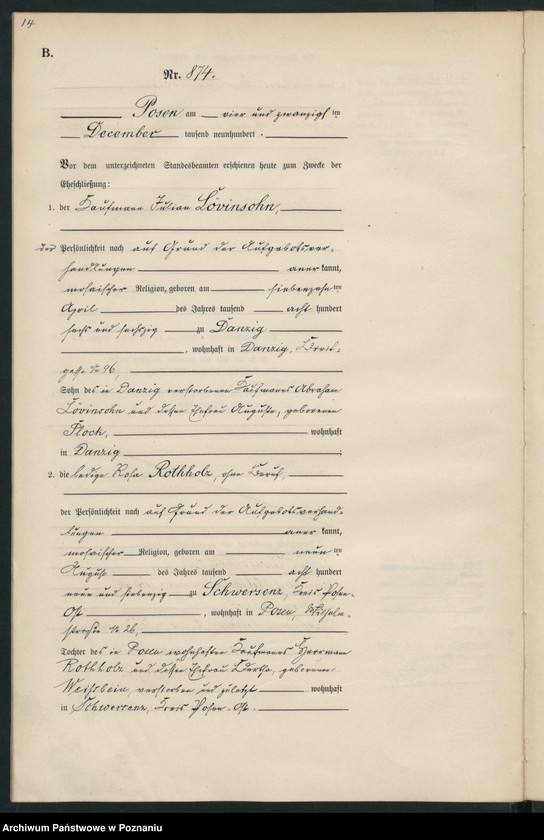 14
B.
Nr. 874.
Posen am vier und zwanzigsten
December tausend neunhundert
Vor dem unterzeichneten Standesbeamten erschienen heute zum Zwecke der
Eheschließung:
1. der Kaufmann Julian Lövinsohn,
der Persönlichkeit nach auf Grund der Aufgebotsver-
handlungen anerkannt,
mosaischer Religion, geboren am siebenzehnten
April des Jahres tausend acht hundert
sechs und sechszig zu Danzig
, wohnhaft in Danzig, Breit-
gasse No 96,
Sohn des in Danzig verstorbenen Kaufmanns Abraham
Lövinsohn und dessen Ehefrau Auguste, geborenen
Flock, wohnhaft
in Danzig ;
2. die ledige Rosa Rothholz, ohne Beruf,
der Persönlichkeit nach auf Grund der Aufgebotsverhand-
lungen anerkannt,
mosaischer Religion, geboren am neunten
August des Jahres tausend acht hundert
neun und siebenzig zu Schwersenz, Kreis Posen-
Ost , wohnhaft in Posen, Wilhelm-
straße No 26,
Tochter des in Posen wohnhaften Kaufmanns Herrman
Rothholz und dessen Ehefrau Bertha, geborenen
Weißbein, verstorben und zuletzt wohnhaft
in Schwersenz, Kreis Posen-Ost.
Archiwum Państwowe w Poznaniu